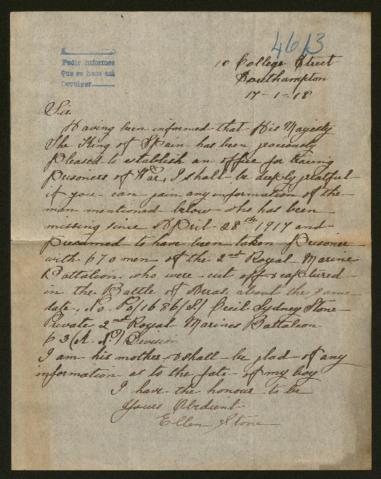 4613
Pedir informes
Que se haga asi
Devolver
10 College Street
Southampton
17-1-18
Sir
Having been informed that His Majesty
The King of Spain has been graciously
Pleased to establish an office for tracing
Prisoners of War, I shall be deeply grateful
if you can gain any information of the
man mentioned below who has been
missing since April 28th 1917 and
presumed to have been taken Prisoner
with 670 men of the 2nd Royal Marine
Battalion who were cut off & captured
in the Battle of Arras about the same
date. No Po/1686/S/ Cecil Sydney Stone
Private 2nd Royal Marines Battalion
63 (R.N.) Division
I am his mother & shall be glad of any
information as to the fate of my boy
I have the honour to be
Yours Obedient
Ellen Stone